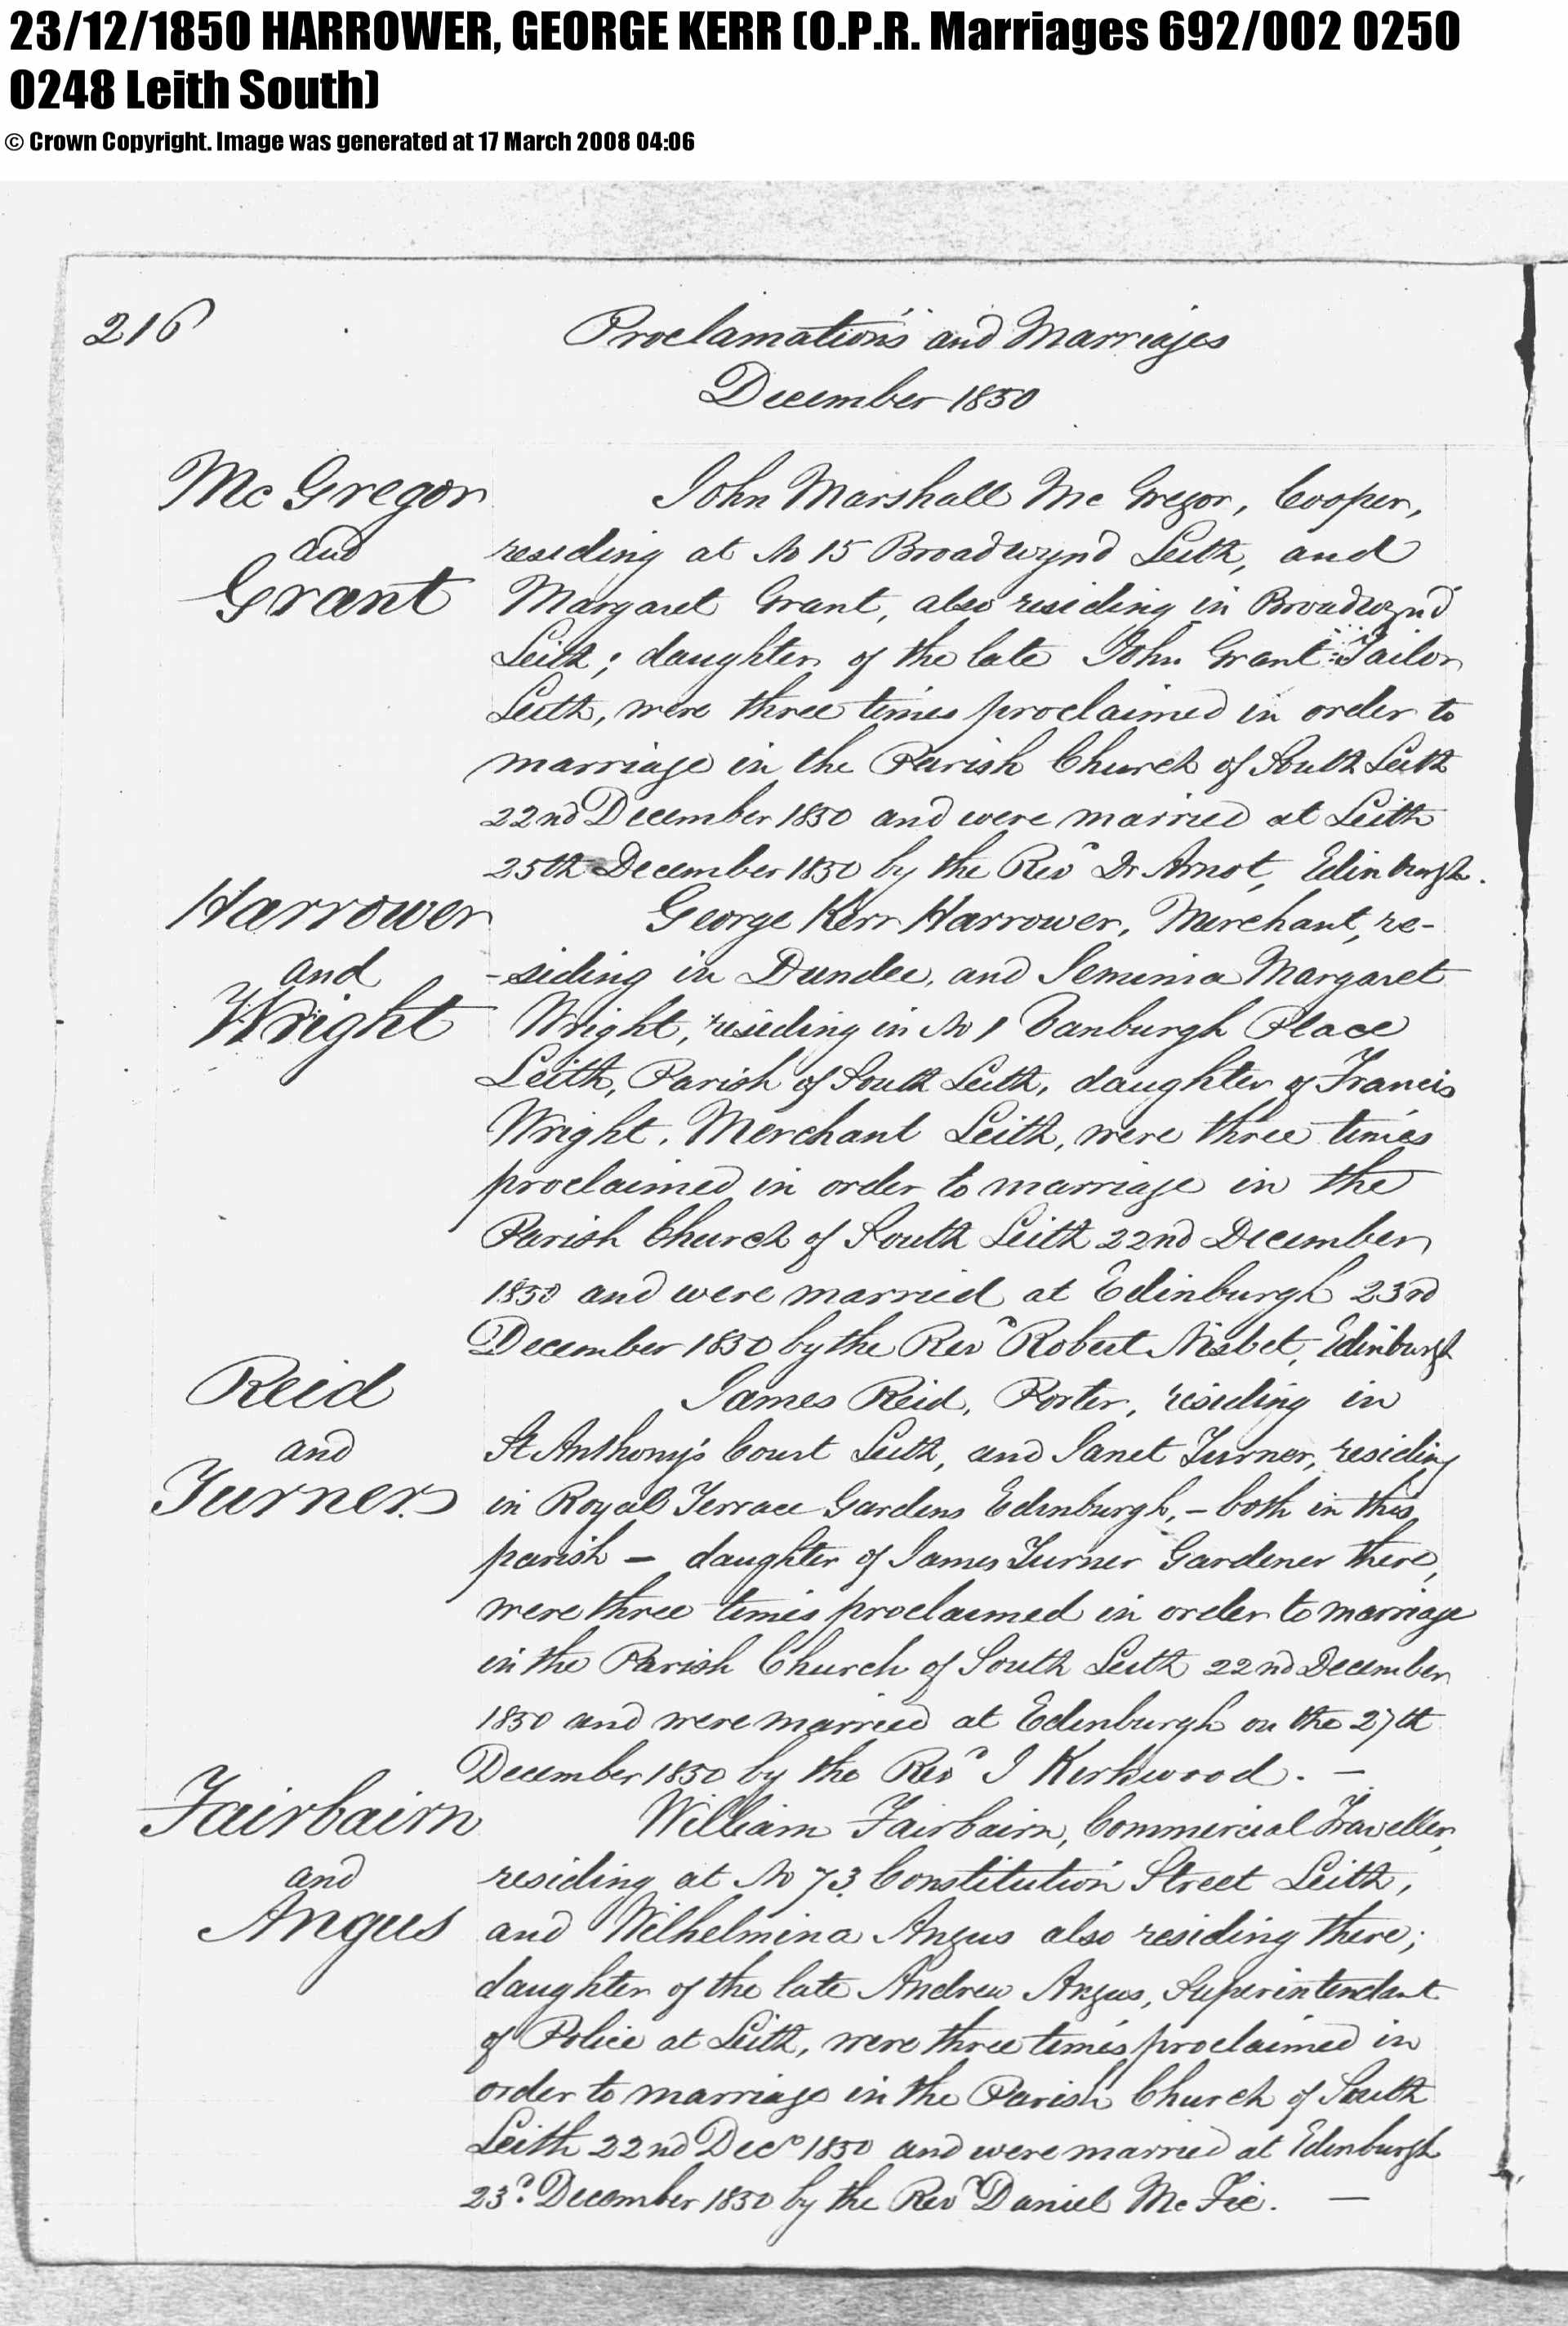 23/12/1850 HARROWER, GEORGE KERR (O.P.R. Marriages 692/002 0250
0248 Leith South)
© Crown Copyright. Image was generated at 17 March 2008 04:06
216
Proclamations and Marriages
December 1850
McGregor
and
Grant
John Marshall McGregor, Cooper,
residing at No 15 Broadwynd Leith, and
Margaret Grant, also residing in Broadwynd
Leith; daughter of the late John Grant Tailor
Leith, were three times proclaimed in order to
marriage in the Parish Church of South Leith
22nd December 1850 and were married at Leith
25th December 1850 by the Revd Dr Arnot, Edinburgh.
Harrower
and
Wright
George Kerr Harrower, Merchant, re-
-siding in Dundee, and Jemima Margaret
Wright, residing in No 1 Vanburgh Place
Leith, Parish of South Leith, daughter of Francis
Wright, Merchant Leith, were three times
proclaimed in order to marriage in the
Parish Church of South Leith 22nd December
1850 and were married at Edinburgh 23rd
December 1850 by the Revd Robert Nisbet, Edinburgh
Reid
and
Turner
James Reid, Porter, residing in
St Anthony's Court Leith, and Janet Turner, residing
in Royal Terrace Gardens Edinburgh, – both in this
parish – daughter of James Turner Gardener there,
were three times proclaimed in order to marriage
in the Parish Church of South Leith 22nd December
1850 and were married at Edinburgh on the 27th
December 1850 by the Revd J Kirkwood. –
Fairbairn
and
Angus
William Fairbairn, Commercial Traveller,
residing at No 73 Constitution Street Leith,
and Wilhelmina Angus also residing there;
daughter of the late Andrew Angus, Superintendant
of Police at Leith, were three times proclaimed in
order to marriage in the Parish Church of South
Leith 22nd Decr 1850 and were married at Edinburgh
23d December 1850 by the Revd Daniel McFie. –